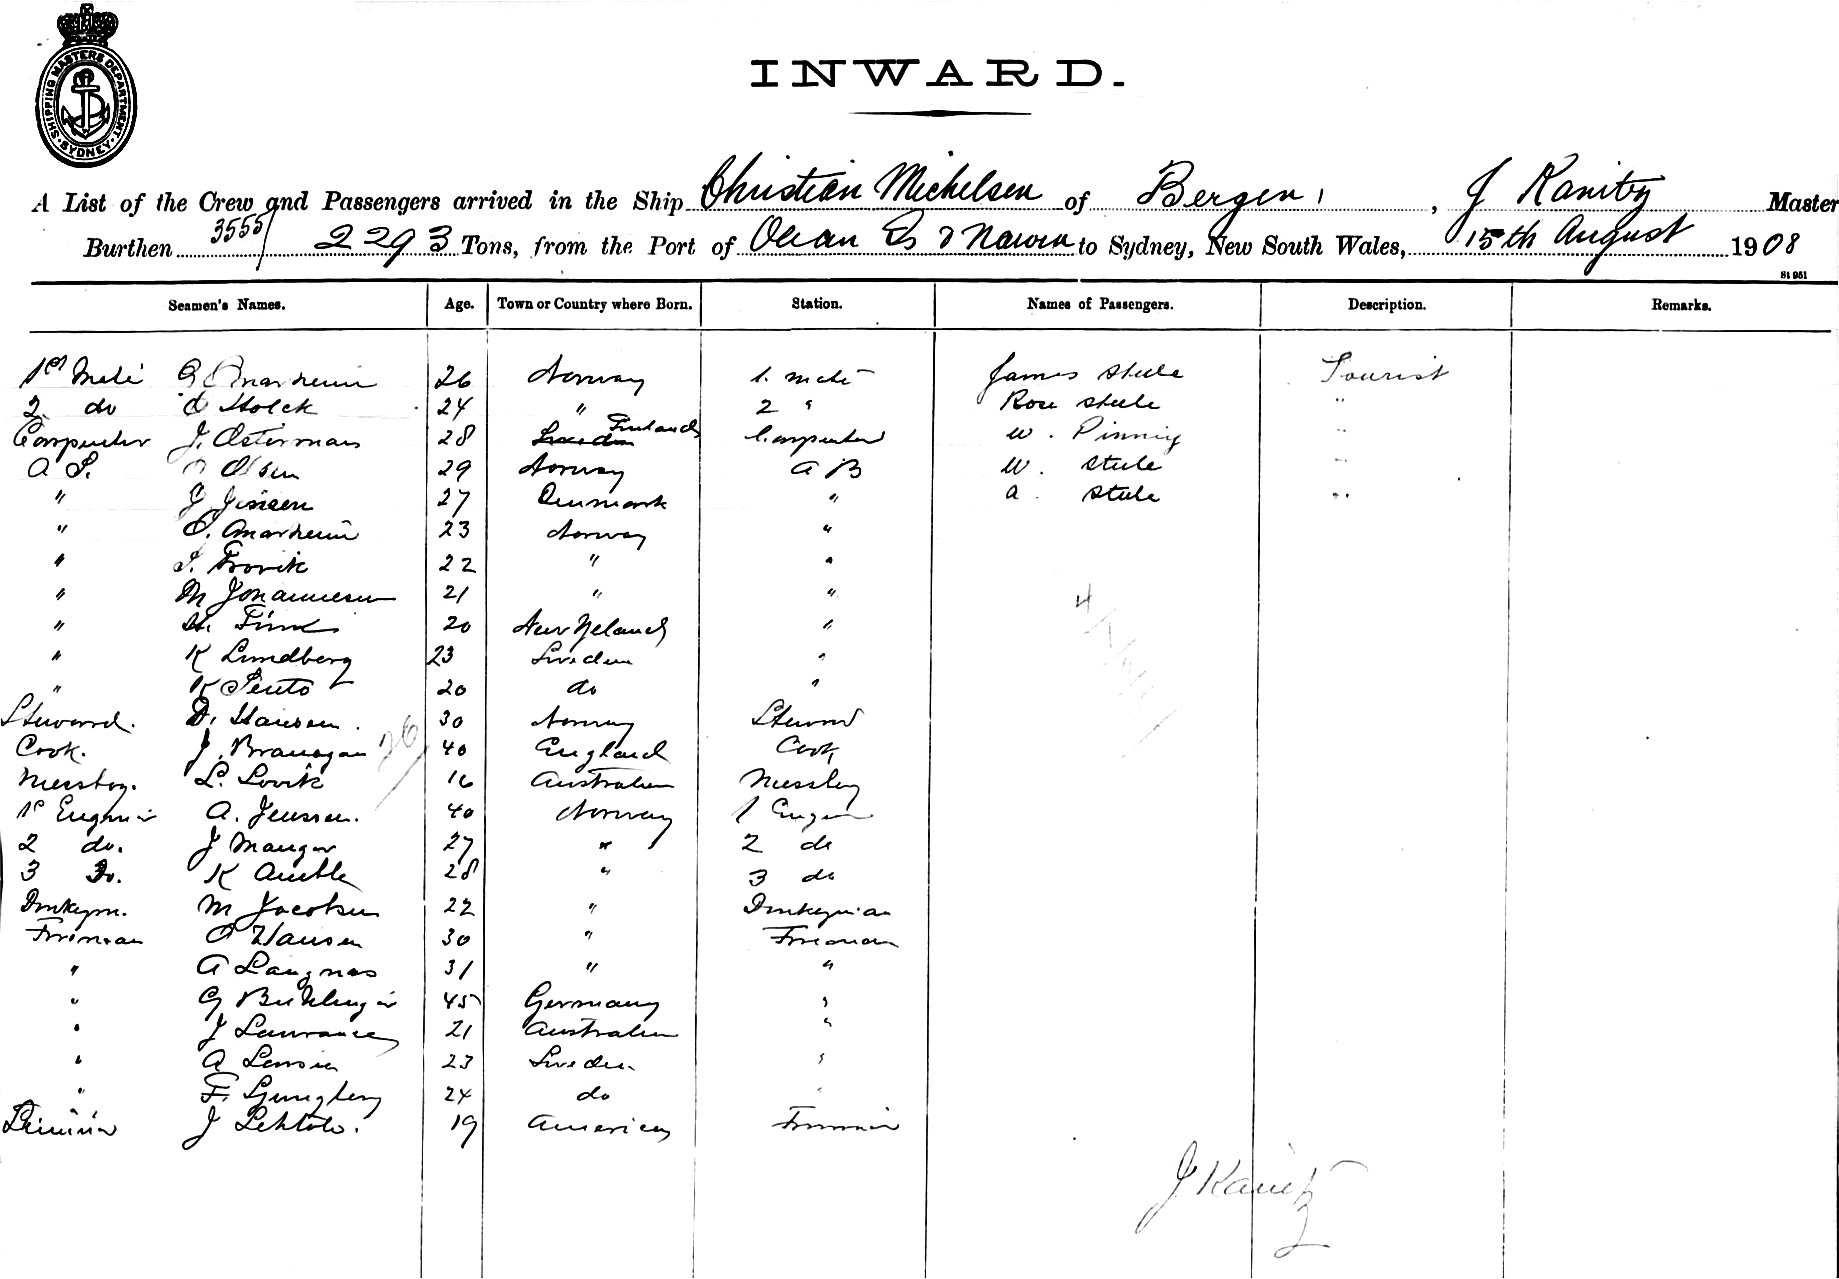 SHIPPING MASTERS DEPARTMENT · SYDNEY ·
INWARD.
A List of the Crew and Passengers arrived in the Ship Christian Michelsen of Bergen, J Kanitz Master
Burthen 3555/2293 Tons, from the Port of Ocean Is & to Sydney, New South Wales, 15th August 1908
St 951
Seamen's Names. Age. Town or Country where Born. Station. Names of Passengers. Description. Remarks.
1st Mate 26 Norway 1. mate James Steele Tourist
2 do Holck 24 " 2 " Rose Steele "
Carpenter J. Osterman 28 Sweden Finland Carpenter W. "
A S. Olsen 29 Norway A B W. Steele "
" J Jensen 27 Denmark " A. Steele "
" O. 23 Norway "
" 22 " "
" M Johannesen 21 " "
" 20 New Zeland "
" K Lundberg 23 Sweden "
" K 20 do "
Steward. D. Hansen. 30 Norway Steward
Cook. J. Branagan 40 England Cook
Messboy. L. Lovik 16 Australia Messboy
26/
1st Engineer A. Jenssen. 40 Norway 1 Engin
2 do. J Manger 27 " 2 do
3 Do. K 28 " 3 do
Donkeym. M Jacobsen 22 " Donkeyman
Fireman O Hansen 30 " Fireman
" A Langnas 31 " "
" G 45 Germany "
" J Lawrance 21 Australia "
" A 23 Sweden "
" F. Ljungberg 24 do "
J Lehtola. 19 America
J Kanitz